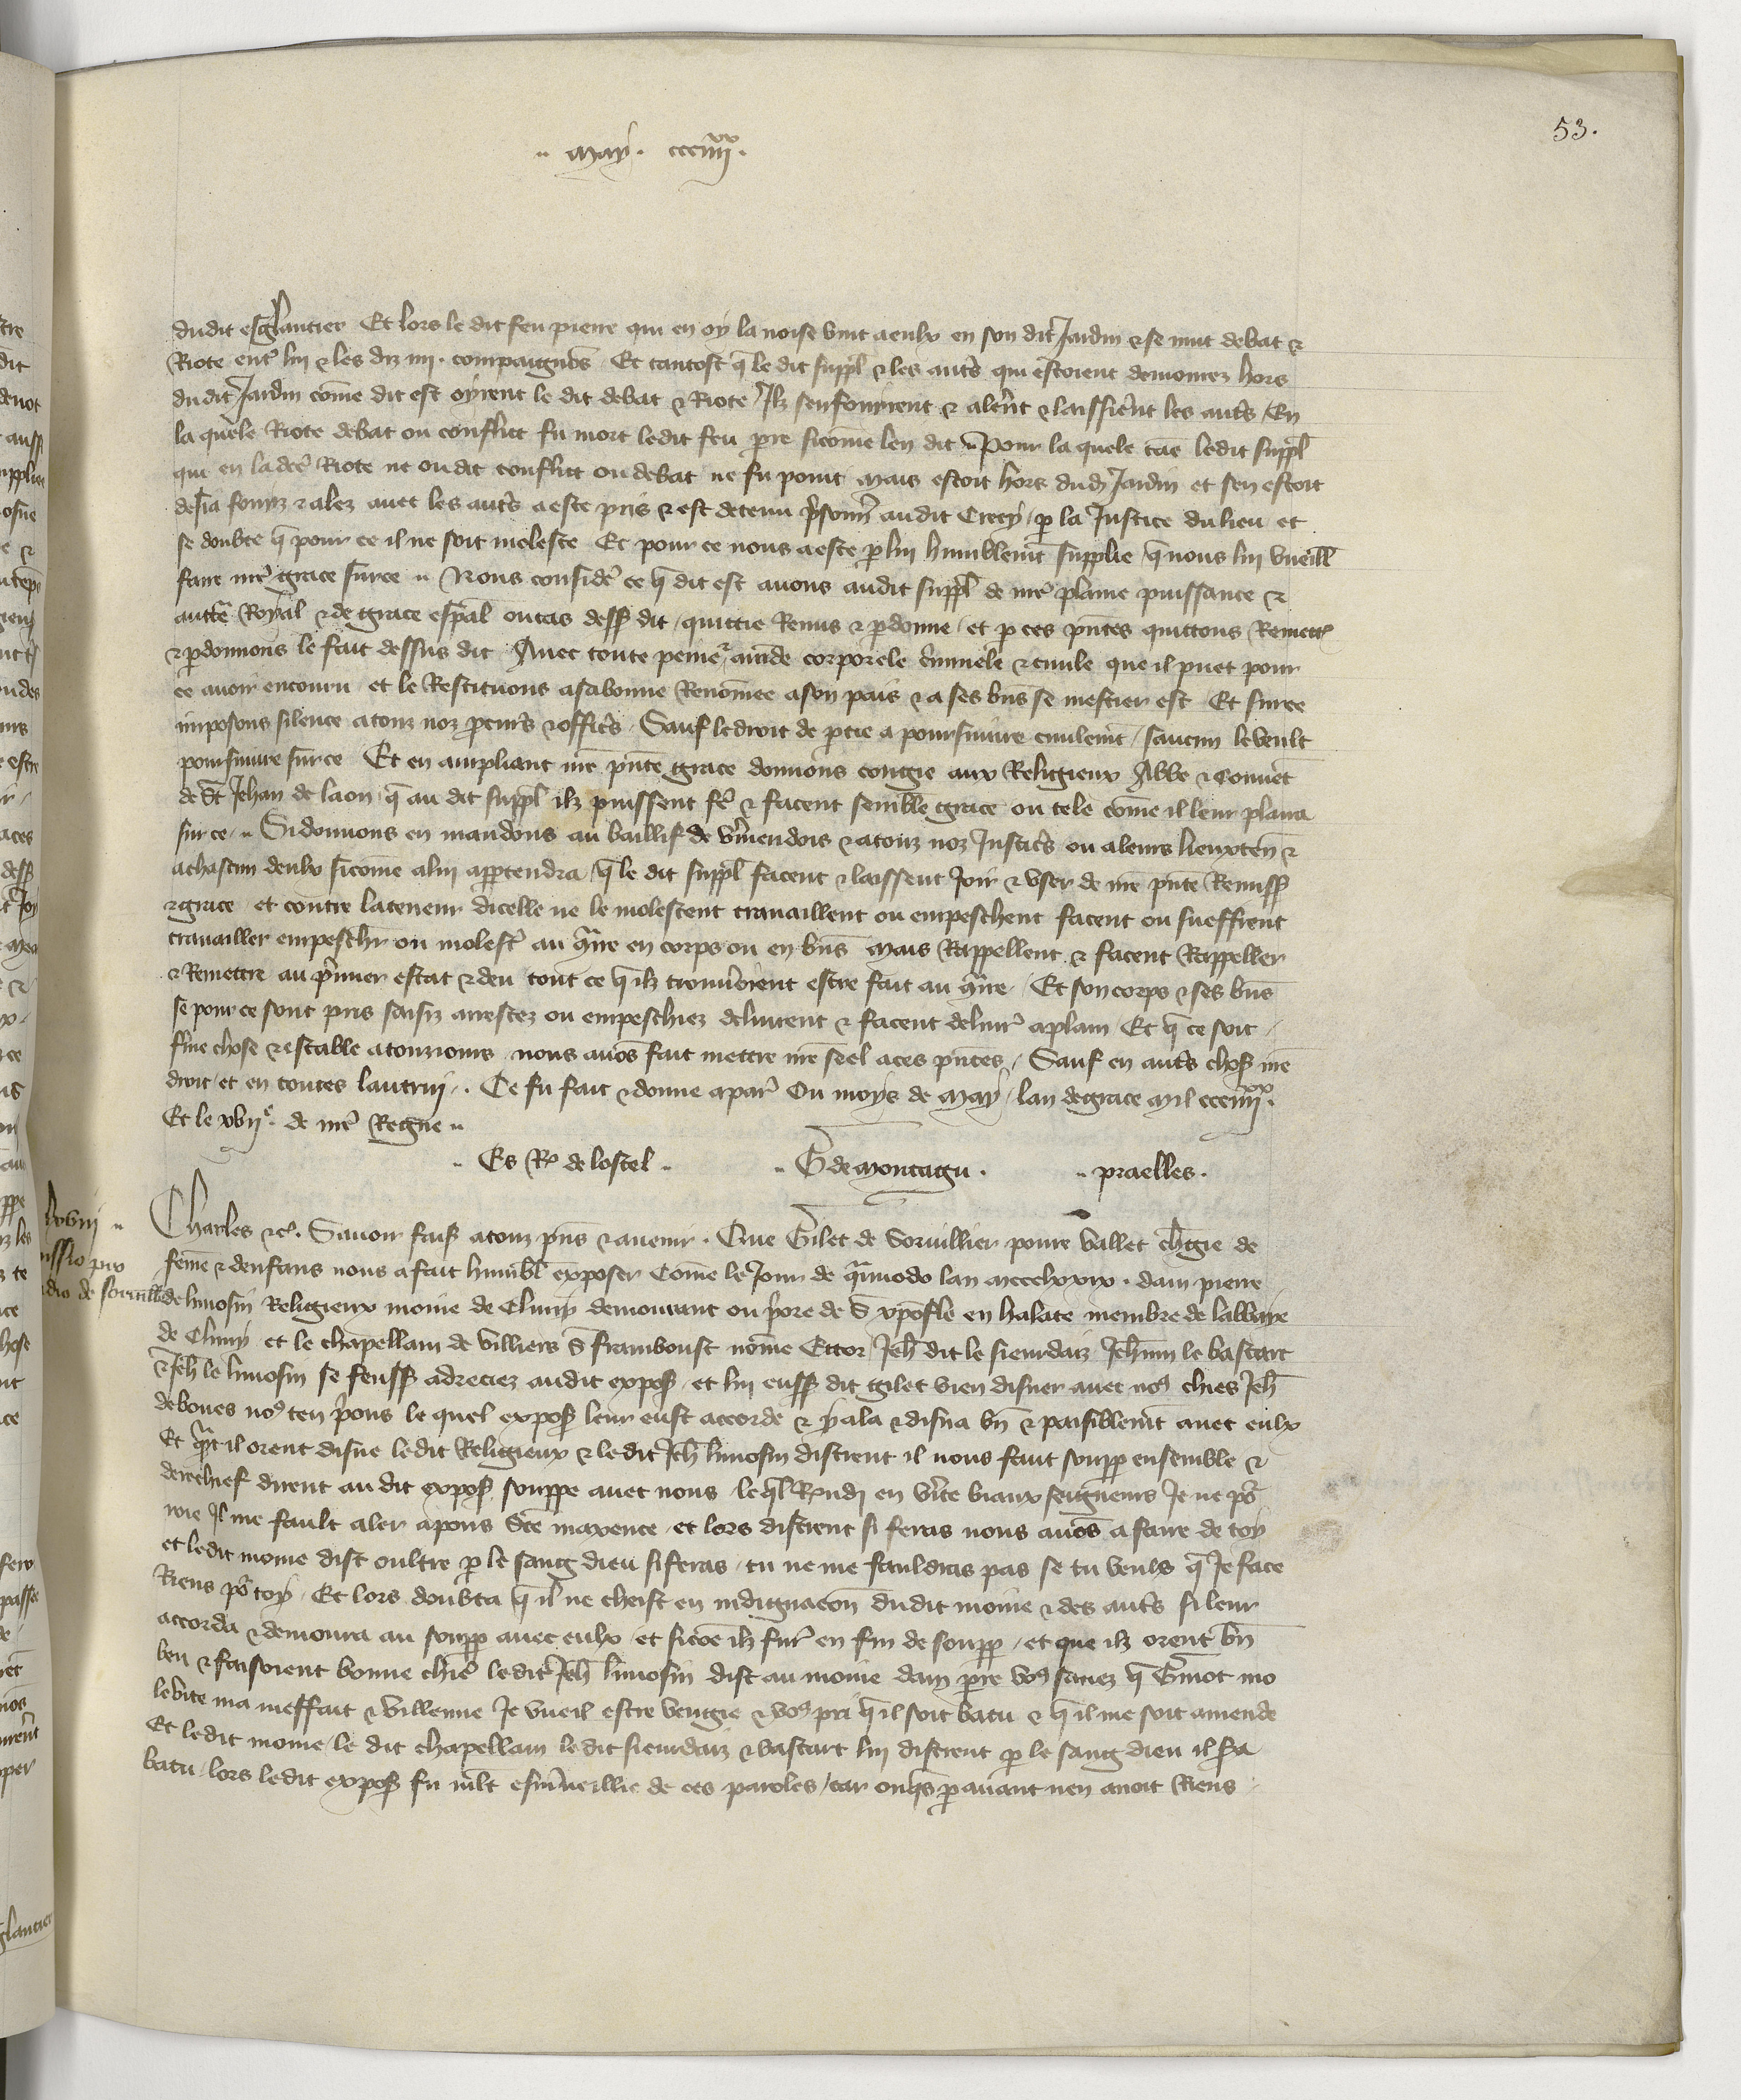 53.
.. may . cccIIIIxx .
dudit esglantier Et lors le dit feu pierre qui en oy la noise vint a eulx en son dit Jardin & se mut debat &
Riote entr̉ lui & les diz IIII . compaignōs Et tantost q̄ le dit suppl̄ & les autr̉s qui estoient demourez hors
du dit Jardin cōme dit est oyrent le dit debat & Riote Ilz senfouyrent & aler̉nt & laissier̉nt les autr̉s / En
la quele Riote debat ou conflict fu mort ledit feu pre sicōme len dit .. Pour la quele cāe ledit suppl̄
qui en lad̄ce Riote ne ou dit conflict ou debat ne fu point mais estoit hors dud̄ Jardin et sen estoit
desia fouyz & alez avec les autr̉s a este pris & est detenu p̉sonn̉ audit Crecy / p la Justice du lieu et
se doubte q̄ pour ce il ne soit moleste Et pour ce nous a este p lui humblem̄t supplie q̄ nous lui vueill̄
faire nr̄e grace sur ce .. Nous consider̉ ce q̄ dit est avons audit suppl̄ de nr̄e plaine puissance &
auctē Royal & de grace esp̄al ou cas dess̄ dit / quittie Remis & pdonne / et p ces p̄ntes quittons Remett̉
& pdonnons le fait dessus dit Avec toute peine & am̄de corporele c̉minele & civile que il puet pour
ce avoir encouru et le Restituons a sa bonne Renōmee a son pais & a ses bn̄s se mestier est Et sur ce
imposons silence a touz noz pcur̉s & offic̉s . Sauf le droit de ptie a poursuivre civilem̄t / saucun le veult
poursuivre sur ce Et en ampliant nr̄e p̄nte grace donnons congie aux Religieux Abbe & Convēt
de St̄ Jehan de laon q̄ au dit suppl̄ ilz puissent fē & facent semblē grace ou tele cōme il leur plaira
sur ce .. Si donnons en mandōns au baillif de v̉mendois & a touz noz Justic̉s ou a leurs lieuxten̄ &
a chascun deulx sicōme a lui apptendra q̄ le dit suppl̄ facent & laissent Joir & user de nr̄e p̄nte Remiss̄
& grace et contre la teneur dicelle ne le molestent travaillent ou empeschent facent ou sueffrent
travailler empesch̄r ou molest̉ au 9t̉re en corps ou en bn̄s mais Rappellent & facent Rappeller
& Remettre au p̉mier estat & deu tout ce q̄ ilz trouv̉oient estre fait au 9t̉re / Et son corps & ses bn̄s
se pour ce sont pris saisiz arrestez ou empeschiez delivrent & facent delivr̉ a plain Et q̄ ce soit .
f̉me chose & estable a tourjours nous avōs fait mettre nr̄e seel a ces p̄ntes / Sauf en autr̉s chos̄ nr̄e
droit / et en toutes lautrui . . Ce fu fait & donne a par̉ Ou moys de may / lan de grace mil cccIIIIxx.
Et le xvIIe . de nr̄e Regne ..
.. Es R̉ de lostel .. .. G de montagu . .. praelles .
lxvIII ..
Charles &c̉ . Savoir fais̄ a touz p̄ns & avenir . Que Gilet de Sorvillier povre vallet ch̄gie de
fēme & denfans nous a fait humbl̄ exposer Cōme le Jour de q̉simodo lan mccclxxix . dam pierre
de limosin Religieux moine de Cluny demourant ou p̉ore de S̄ xp̄ofle en halate membre de labbaye
de Cluny et le chapellain de villiers S̄ framboust nōme Ector Jeh̄ dit le sieurdaiz Jeh̄nin le bastart
& Jeh̄ le limosin se feuss̄ adreciez audit expos̄ . et lui euss̄ dit gilet vien disner avec no9 chies Jeh̄
deboues no9 ten p̉ons le quel expos̄ leur eust accorde & y ala & disna bn̄ & paisiblem̄t avec eulx
Et q̉nt il orent disne ledit Religieux & ledit Jeh̄ limosin distrent il nous faut soupp ensemble &
derechief dirent au dit expos̄ souppe avec nous leq̄l R̄ndi en v̉ite biaux seigneurs Je ne pỏ
roie Il me fault aler a pons Ste maxence . et lors distrent si feras nous avōs a faire de toy
et ledit moine dist oultre p le sang dieu si feras . tu ne me fauldras pas se tu veulx q̄ Je face
Riens pỏ toy . Et lors doubta q̄ il ne cheist en indignacōn dudit moine & des autr̉s si leur
accorda & demoura au soupp avec eulx / et sicōe ilz fur̉ en fin de soupp / et que ilz orent bn̄
beu & faisoient bonne chier̉ ledit Jeh̄ limosin dist au moine dam pre vo9 savez q̄ Gmot mo
levite ma meffait & villenne Je vueil estre vengie & vo9 pri q̄ il soit batu & q̄ il me soit amende
Et ledit moine / le dit chapellain le dit sieurdaiz & bastart lui distrent p le sang dieu il s̉a
batu / lors ledit expos̄ fu ml̄t esm̉veillie de ces paroles / car onq̄s pavant nen avoit Riens